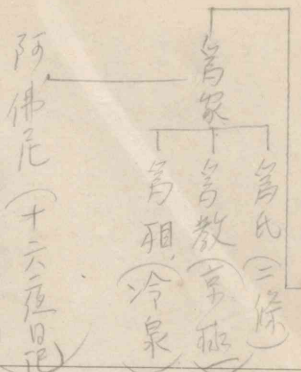 為家
為氏(二條)
為教(京極)
為相(冷泉)
阿佛尼(十六夜日記)